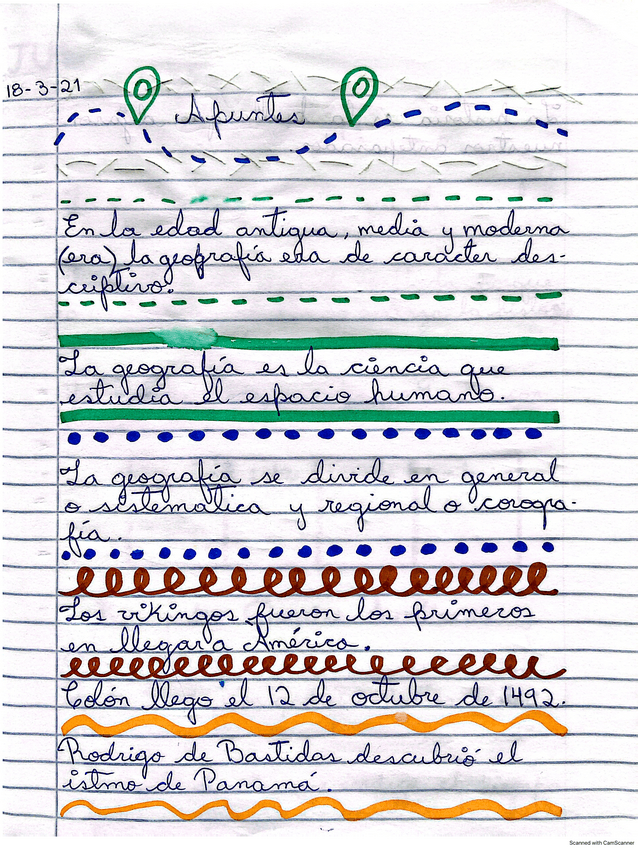 18-3-21
Apuntes
En la edad antigua, media y moderna
(era) la geografía era de caracter des-
criptivo.
La geografía es la ciencia que
estudia el espacio humano.
La geografía se divide en general
o sistematica y regional o corogra-
fía.
Los vikingos fueron los primeros
en llegar a América.
Colón llego el 12 de octubre de 1492.
Rodrigo de Bastidas descubrió el
istmo de Panamá.
Scanned with CamScanner